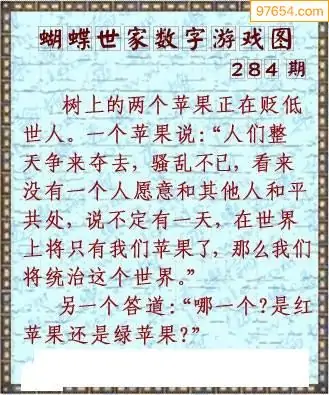 97654.com
蝴蝶世家数字游戏图
284期
树上的两个苹果正在贬低
世人。一个苹果说:“人们整
天争来夺去,骚乱不已,看来
没有一个人愿意和其他人和平
共处,说不定有一天,在世界
上将只有我们苹果了,那么我们
将统治这个世界。”
另一个答道:“哪一个?是红
苹果还是绿苹果?”